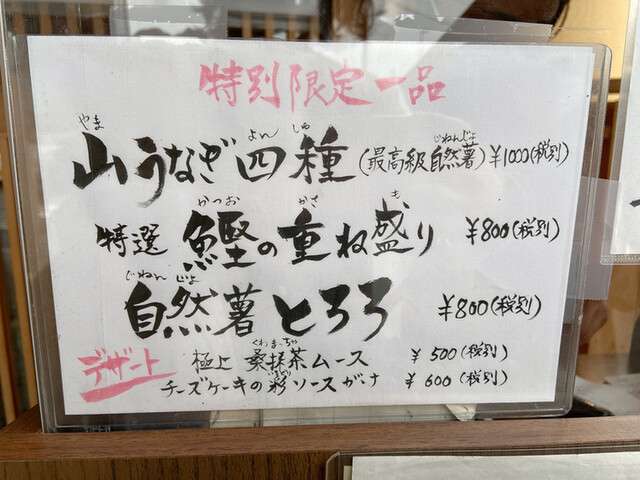 特別限定一品
やま よん しゅ じねんじょ
山うなぎ四種(最高級自然薯)¥1000(税別)
かつお かさ も
特選 鰹の重ね盛り ¥800(税別)
じねん じょ
自然薯とろろ ¥800(税別)
くわまっちゃ
デザート 極上 桑抹茶ムース ¥500(税別)
いろどり
チーズケーキの彩ソースがけ ¥600(税別)